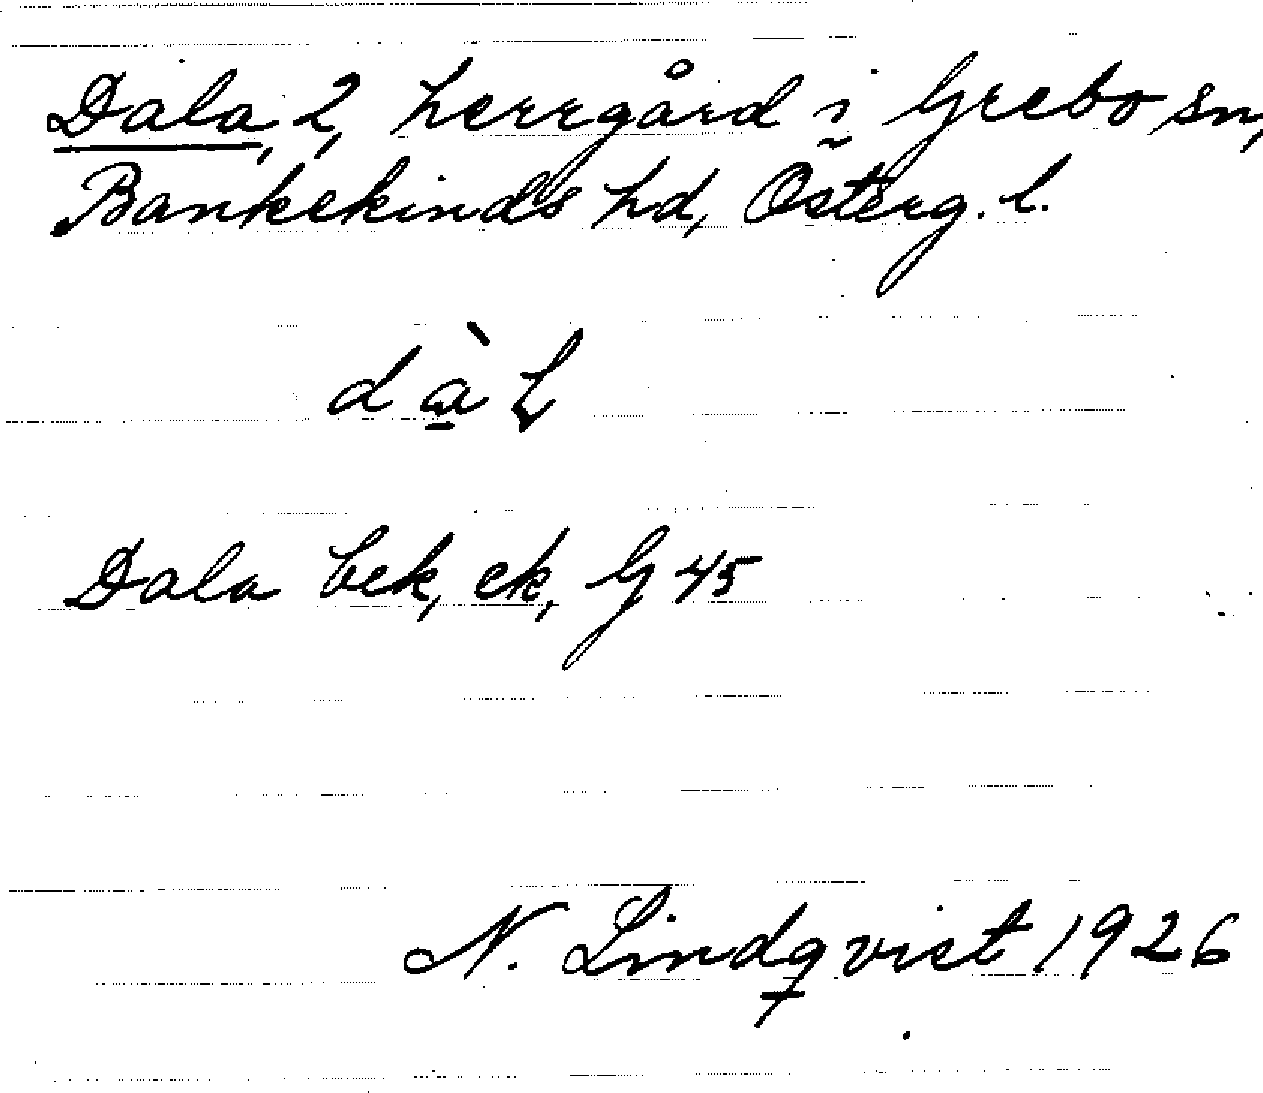 Dala, 2, herrgård i Grebo sn,
Bankekinds hd, Österg. l.
dàl
Dala bek, ek, G 45
N. Lindqvist 1926